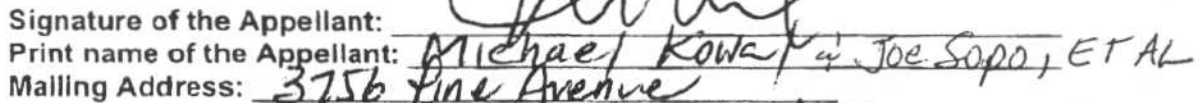 Signature of the Appellant:
Print name of the Appellant: Michael Kowal & Joe Sopo, ET AL
Mailing Address: 3756 Pine Avenue